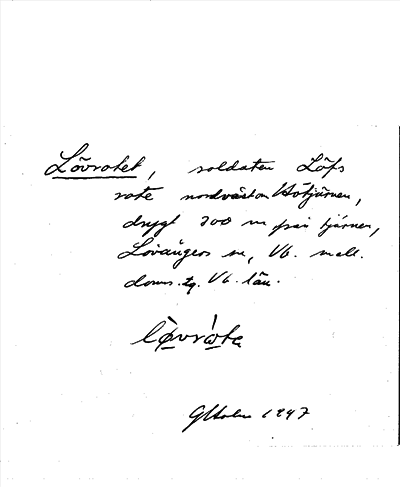 Lövrotet, soldaten Löfs
rote nordväst om Hötjärnen,
drygt 300 m från tjärnen,
Lövångers sn, Vb. mell.
doms. tg. Vb. län.
lövrωta
GHolm 1947